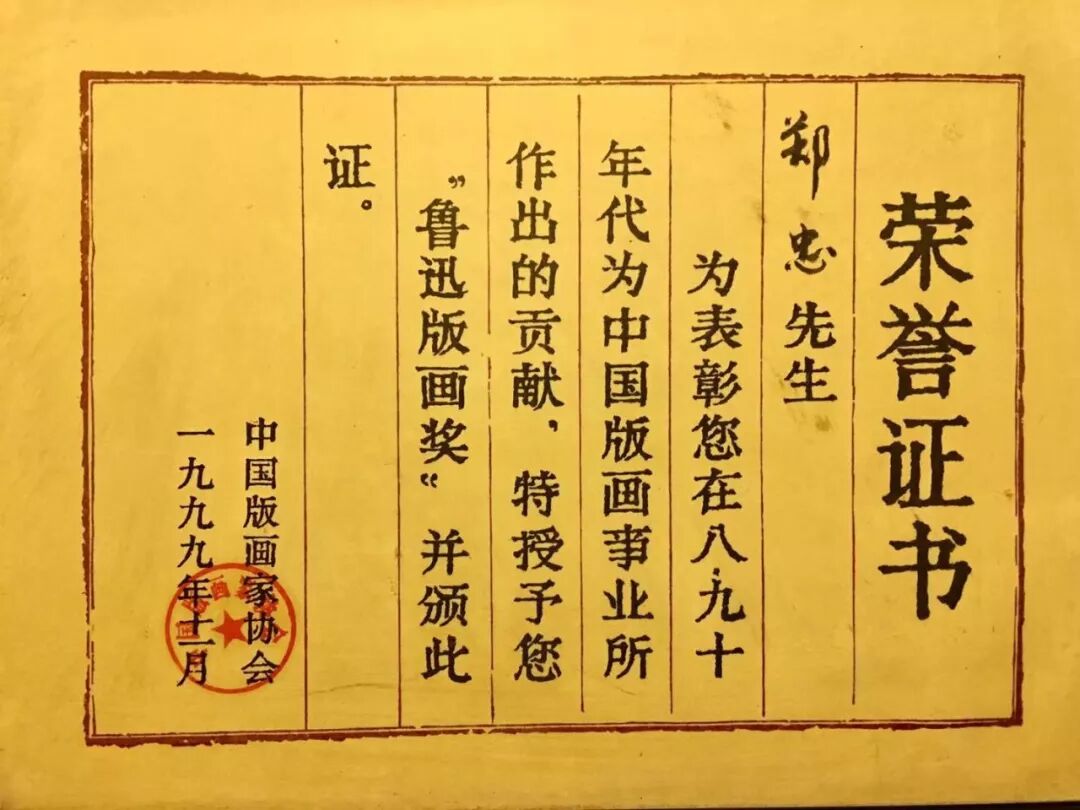 荣誉证书
郑忠先生
为表彰您在八、九十
年代为中国版画事业所
作出的贡献，特授予您
“鲁迅版画奖”并颁此
证。
中国版画家协会
一九九九年十一月